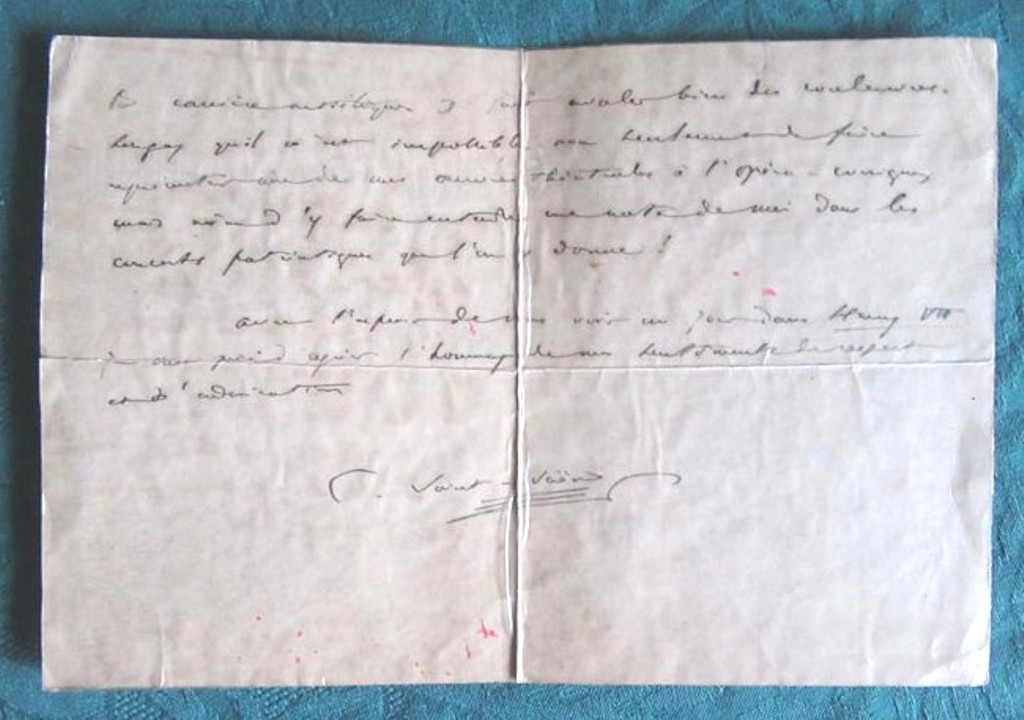 carrière artistique fait avaler bien des couleuvres.
qu'il m'est impossible non seulement de faire
représenter une de mes œuvres théâtrales à l'Opéra-Comique
mais même d'y faire entendre une note de moi dans les
concerts patriotiques que l'on y donne !
avec l'espoir de vous voir un jour dans Henry VIII
je vous prie d'agréer l'hommage de mes sentiments de respect
et d'admiration
C. Saint-Saëns